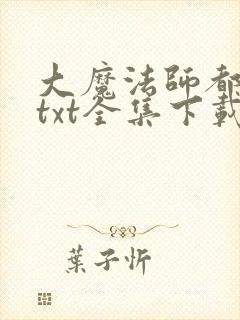 大魔法師都
txt全集下載
葉子忻